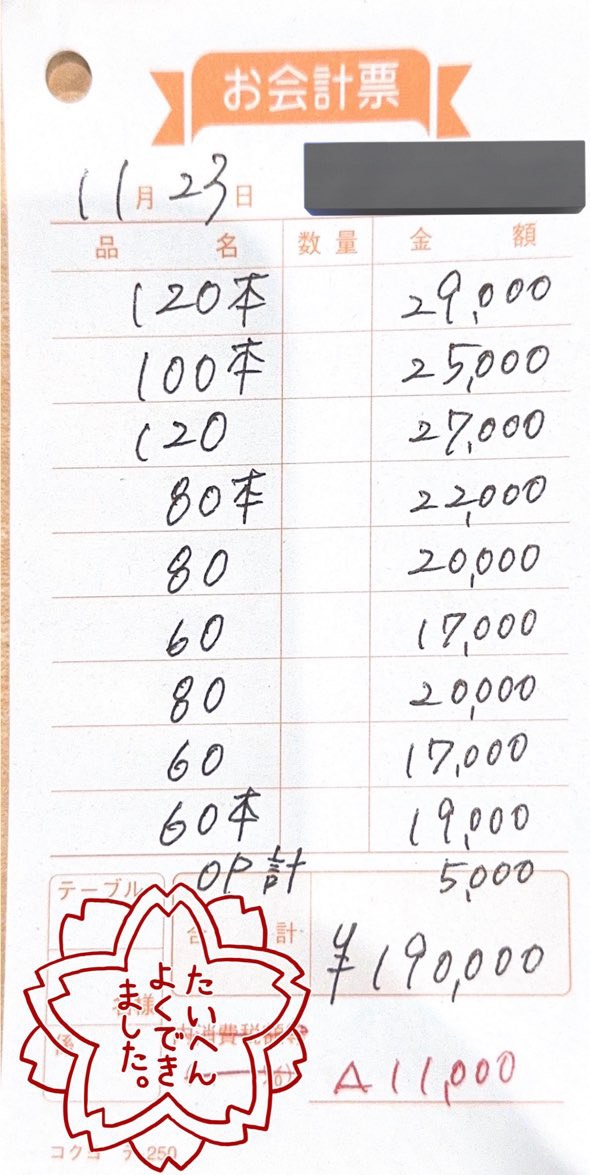 お会計票
11月23日
品名 数量 金額
120本 29,000
100本 25,000
120 27,000
80本 22,000
80 20,000
60 17,000
80 20,000
60 17,000
60本 19,000
OP計 5,000
テーブル
合計 ¥190,000
者様
係
内消費税額等
%)
△11,000
たいへん
よくでき
ました。
コクヨ
250